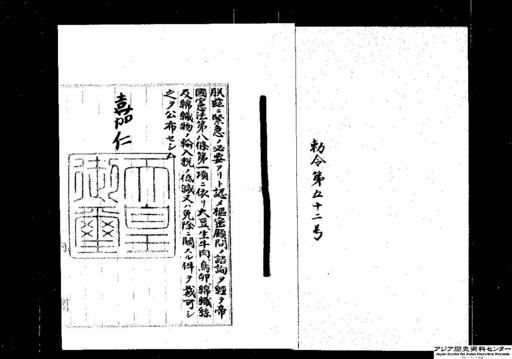 勅令第五十二号
朕玆ニ緊急ノ必要アリト認メ樞密顧問ノ諮詢ヲ經テ帝
國憲法第八條第一項ニ依リ大豆生牛肉鳥卵綿織絲
及綿織物ノ輸入税ノ低減又ハ免除ニ關スル件ヲ裁可シ
之ヲ公布セシム
嘉仁
天皇
御璽
アジア歴史資料センター
Japan Center for Asian Historical Records